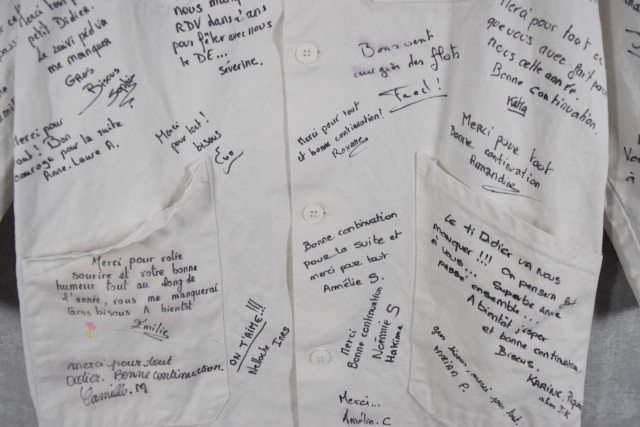 petit Didier.
Le souri pédia
me manquera
Gros
Bisous
Merci pour
tout! Bon
courage pour la suite
Anne-Laure A.
nous
RDV dans 2 ans
pour fêter avec nous
le DE...
Séverine.
Merci
pour tout!
bisous
Bon vent
au gré des flots
Fred!
Merci pour tout
et bonne continuation!
Roxane
Merci pour tout ce
que vous avez fait pour
nous cette année.
Bonne continuation.
Katia
Merci pour tout
bonne continuation
Amandine
Merci pour votre
sourire et votre bonne
humeur tout au long de
l'année, vous me manquerai
Gros bisous A bientôt
Emilie
merci pour tout
Didier. Bonne continuation
Camille. M
ON T'AIME!!!
Inès
Bonne continuation
pour la suite et
merci par tout
Annélie S.
Merci
Bonne continuation
Noémie S
Hakima
Merci...
Amélie. C
Le ti Didier va nous
manquer!!! On pensera fort
à vous... Superbe année
passée ensemble...!
A bientôt j'espère
et bonne continuation.
Bisous.
KARINE.
gros bisous, merci pour tout.
MARIAN P.